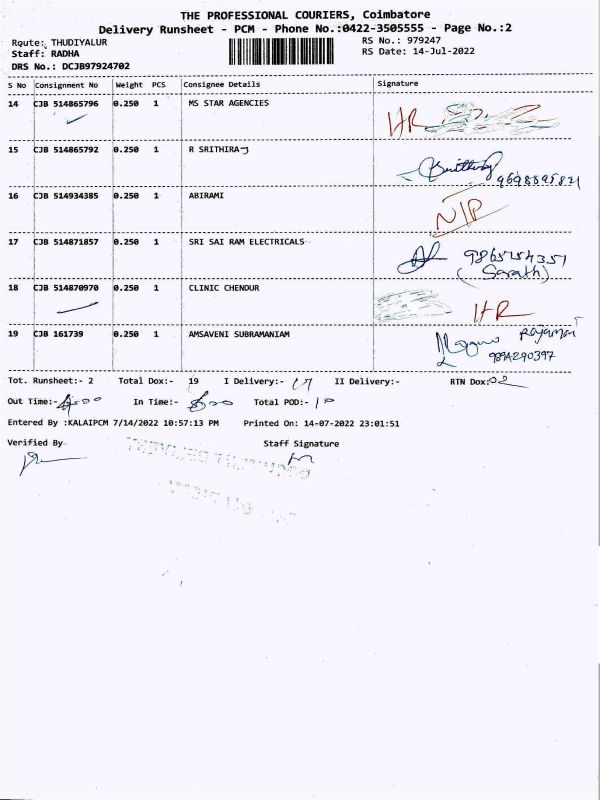 THE PROFESSIONAL COURIERS, Coimbatore
Delivery Runsheet - PCM - Phone No.:0422-3505555 - Page No.:2
Route: THUDIYALUR
RS No.: 979247
Staff: RADHA
RS Date: 14-Jul-2022
DRS No.: DCJB97924702
S No Consignment No Weight PCS Consignee Details Signature
14 CJB 514865796 0.250 1 MS STAR AGENCIES HR
15 CJB 514865792 0.250 1 R SRITHIRAJ
16 CJB 514934385 0.250 1 ABIRAMI N/P
17 CJB 514871857 0.250 1 SRI SAI RAM ELECTRICALS
(Sarath)
18 CJB 514870970 0.250 1 CLINIC CHENDUR HR
19 CJB 161739 0.250 1 AMSAVENI SUBRAMANIAM
9894290397
Tot. Runsheet:- 2 Total Dox:- 19 I Delivery:- 17 II Delivery:- RTN Dox:02
Out Time:- In Time:- Total POD:-
Entered By :KALAIPCM 7/14/2022 10:57:13 PM Printed On: 14-07-2022 23:01:51
Verified By Staff Signature